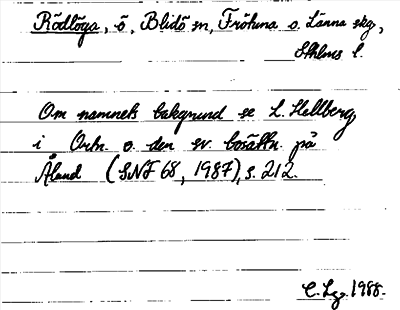 Rödlöga, ö, Blidö sn, Frötuna o. Länna skg,
Sthlms l.
Om namnets bakgrund se L. Hellberg
i Ortn. o. den sv. bosättn. på
Åland (SNF 68, 1987), s. 212.
C. Lg. 1988.